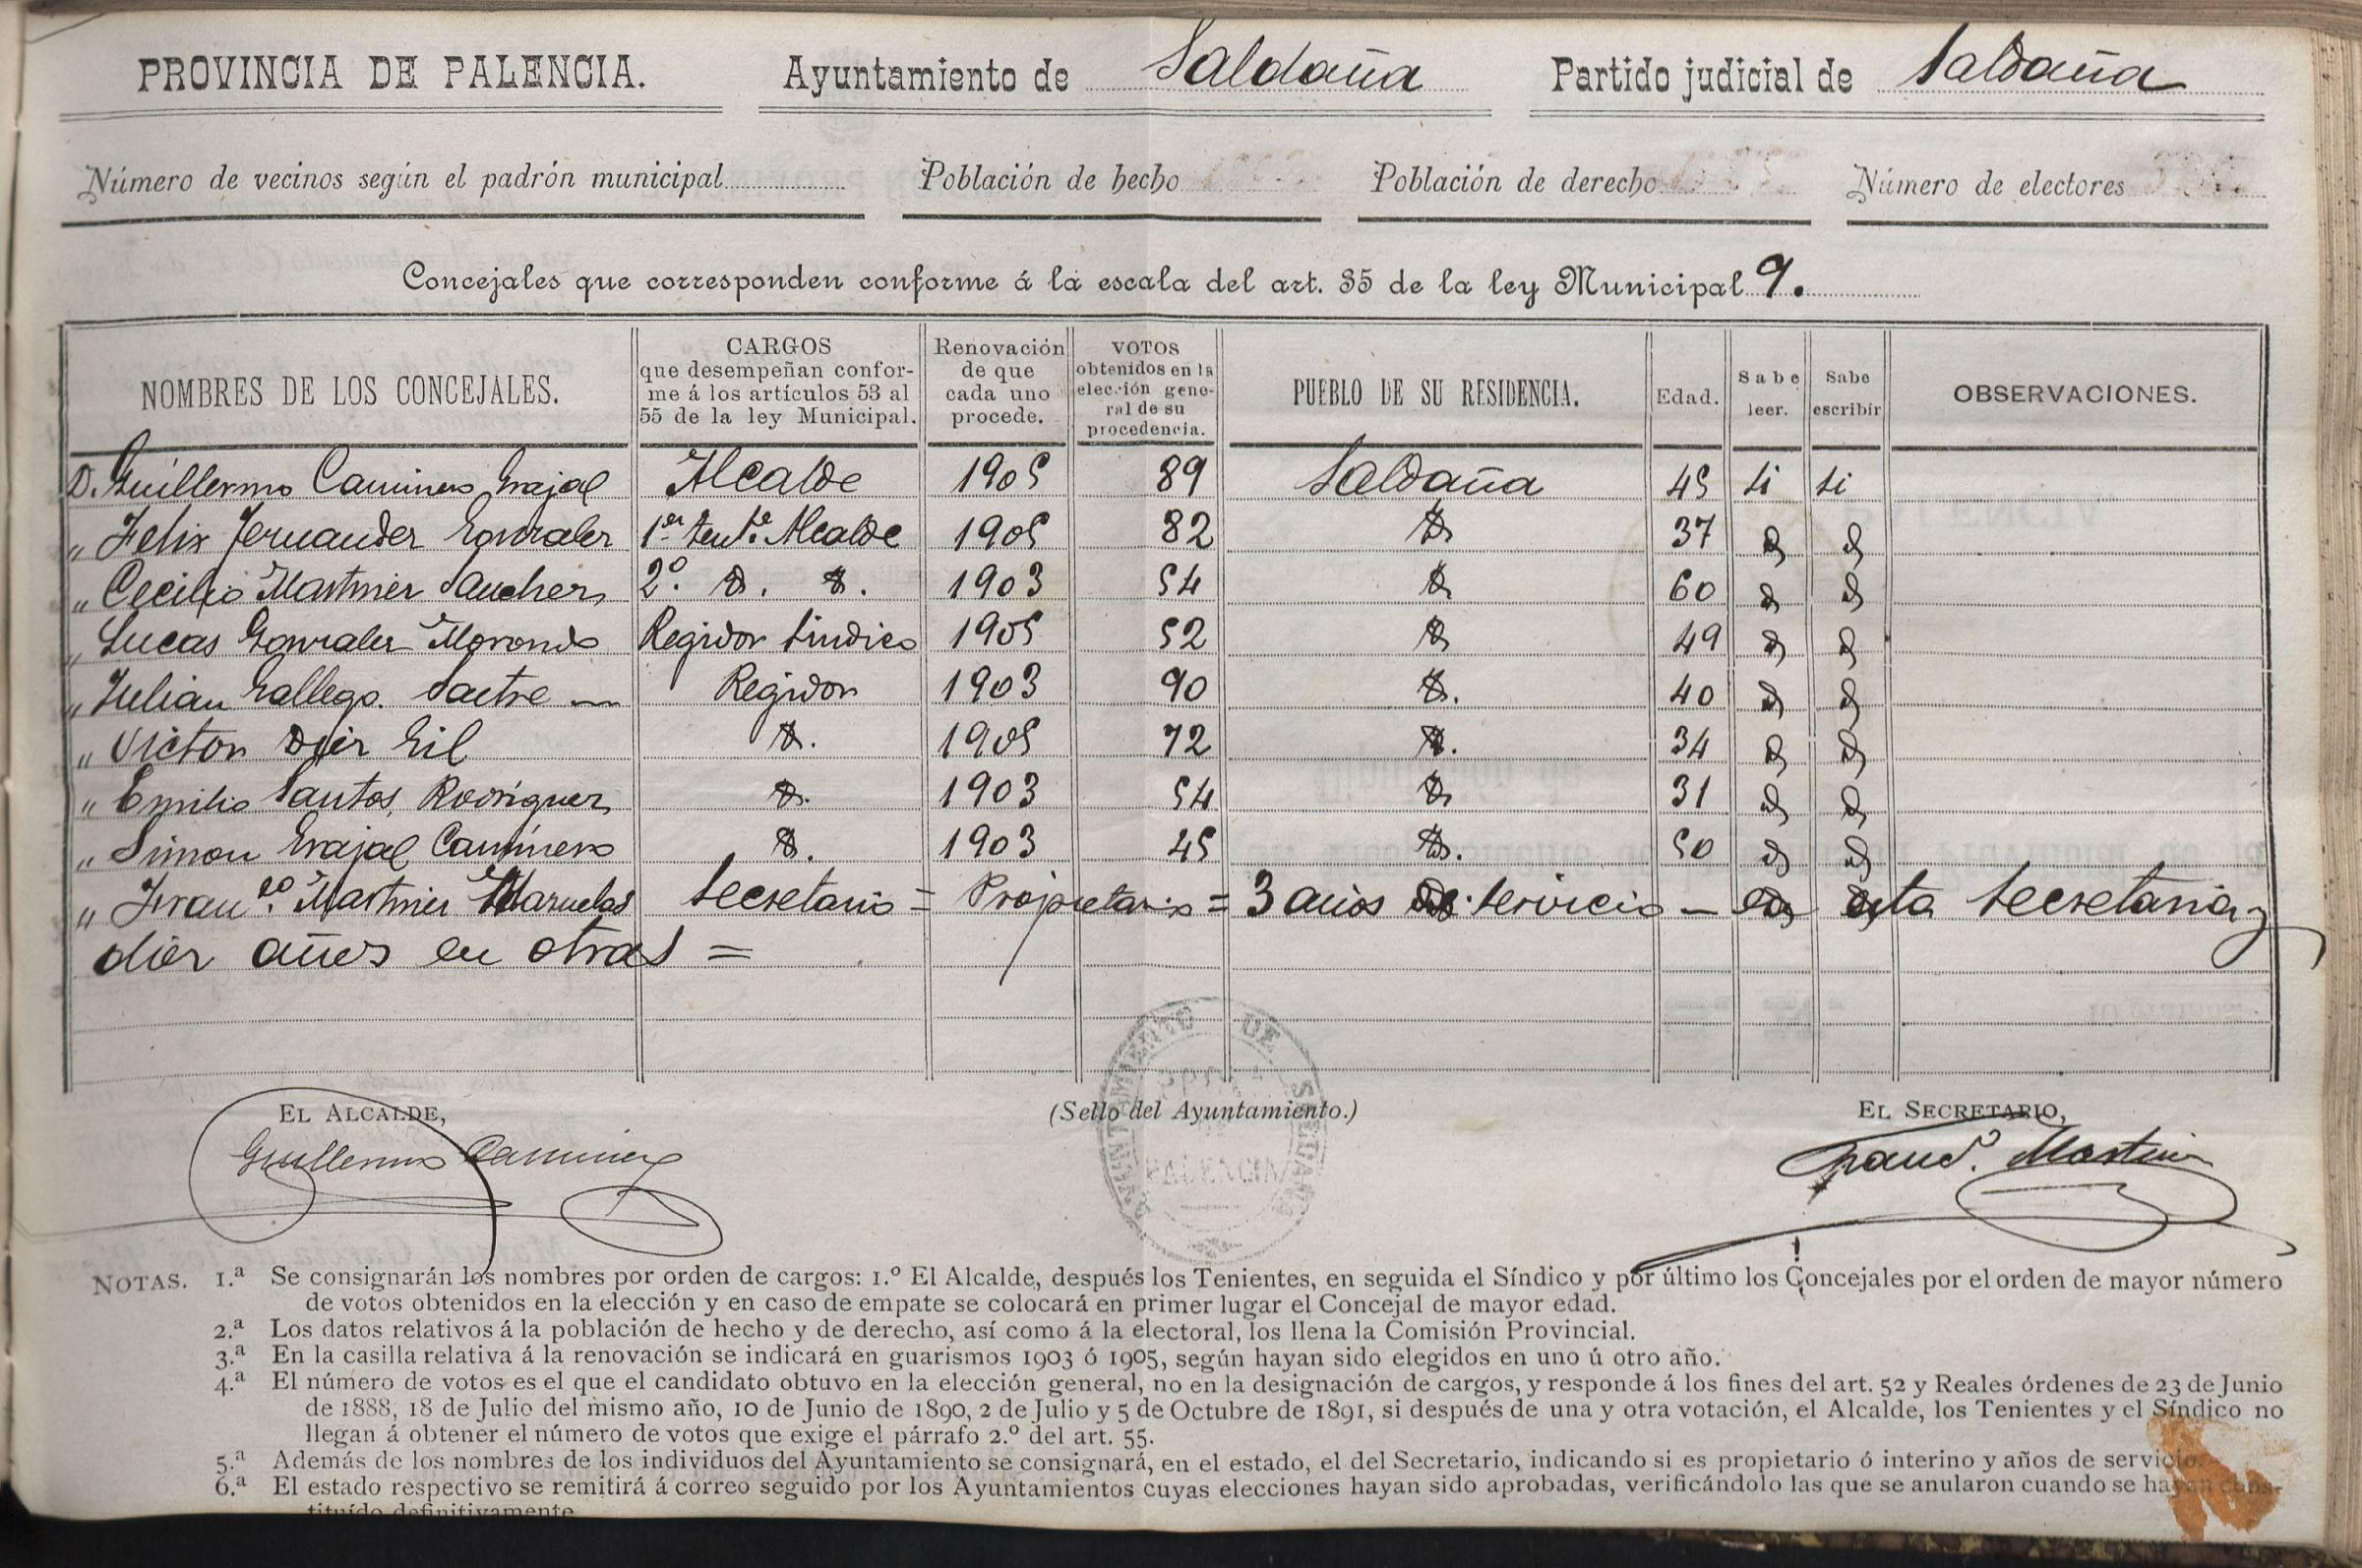 PROVINCIA DE PALENCIA. Ayuntamiento de Saldaña Partido judicial de Saldaña
Número de vecinos según el padrón municipal Población de hecho Población de derecho Número de electores
Concejales que corresponden conforme á la escala del art. 35 de la ley Municipal 9.
NOMBRES DE LOS CONCEJALES. CARGOS que desempeñan conforme á los artículos 53 al 55 de la ley Municipal. Renovación de que cada uno procede. VOTOS obtenidos en la elección general de su procedencia. PUEBLO DE SU RESIDENCIA. Edad. Sabe leer. Sabe escribir OBSERVACIONES.
D. Guillermo Caminero Grajal Alcalde 1905 89 Saldaña 45 si si
" Felix Fernandez Gonzalez 1er tente Alcalde 1905 82 D 37 D D
" Cecilio Martinez Sanchez 2º. D. D. 1903 54 D 60 D D
" Lucas Gonzalez Morondo Regidor Sindico 1905 52 D 49 D D
" Julian Gallego Sastre Regidor 1903 90 D. 40 D D
" Victor Diez Gil D. 1905 72 D. 34 D D
" Emilio Santos Rodriguez D. 1903 54 D 31 D D
" Simon Grajal Caminero D. 1903 45 D. 50 D D
" Franco. Martinez Mazuelas Secretario = Propietario = 3 años de servicio - en esta Secretaria y
diez años en otras =
EL ALCALDE, (Sello del Ayuntamiento.) EL SECRETARIO,
Guillermo Caminero AYUNTAMIENTO DE SALDAÑA PALENCIA Franco. Martinez
NOTAS. 1.ª Se consignarán los nombres por orden de cargos: 1.º El Alcalde, después los Tenientes, en seguida el Síndico y por último los Concejales por el orden de mayor número
de votos obtenidos en la elección y en caso de empate se colocará en primer lugar el Concejal de mayor edad.
2.ª Los datos relativos á la población de hecho y de derecho, así como á la electoral, los llena la Comisión Provincial.
3.ª En la casilla relativa á la renovación se indicará en guarismos 1903 ó 1905, según hayan sido elegidos en uno ú otro año.
4.ª El número de votos es el que el candidato obtuvo en la elección general, no en la designación de cargos, y responde á los fines del art. 52 y Reales órdenes de 23 de Junio
de 1888, 18 de Julio del mismo año, 10 de Junio de 1890, 2 de Julio y 5 de Octubre de 1891, si después de una y otra votación, el Alcalde, los Tenientes y el Síndico no
llegan á obtener el número de votos que exige el párrafo 2.º del art. 55.
5.ª Además de los nombres de los individuos del Ayuntamiento se consignará, en el estado, el del Secretario, indicando si es propietario ó interino y años de servicio.
6.ª El estado respectivo se remitirá á correo seguido por los Ayuntamientos cuyas elecciones hayan sido aprobadas, verificándolo las que se anularon cuando se hayan cons-
tituído definitivamente